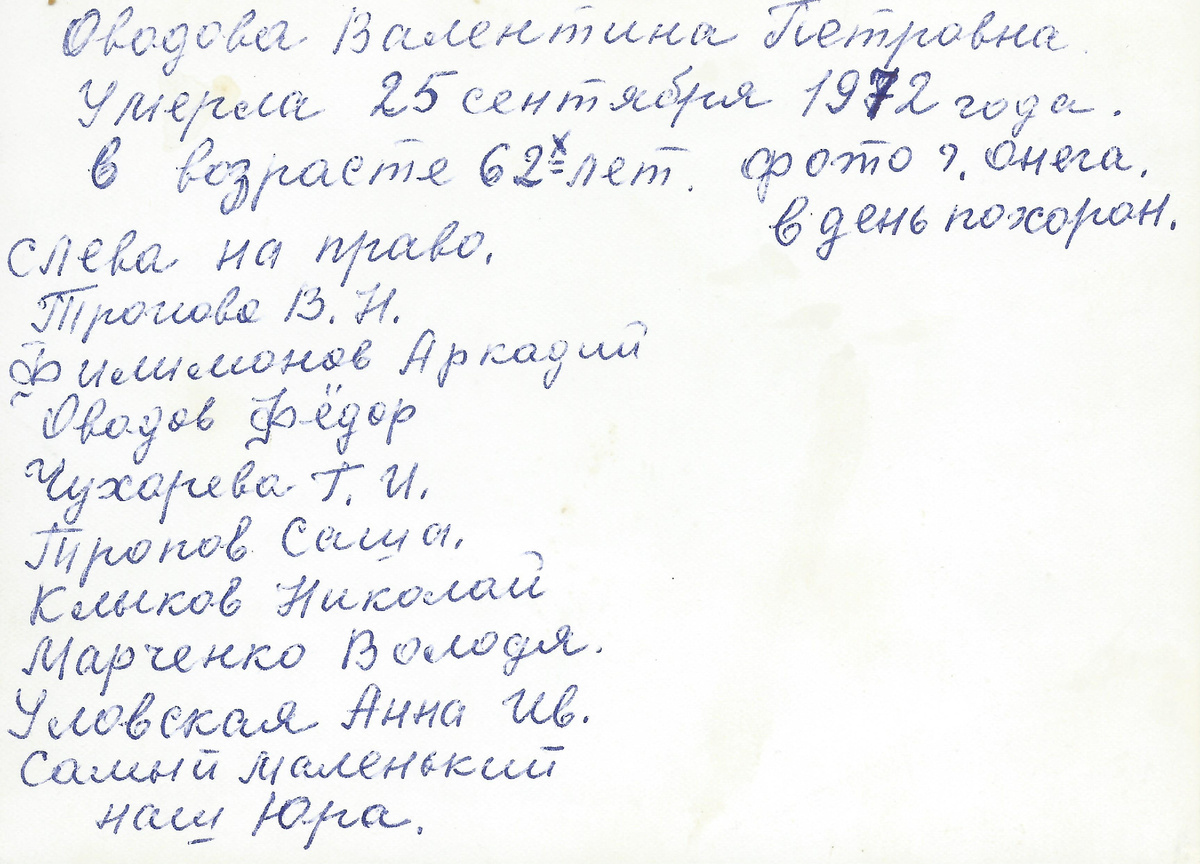 Оводова Валентина Петровна
Умерла 25 сентября 1972 года.
в возрасте 62х лет. фото г. Онега.
в день похорон.
слева на право.
Тропова В. Н.
Филимонов Аркадий
Оводов Фёдор
Чухарева Т. И.
Тропов Саша.
Клыков Николай
Марченко Володя.
Уловская Анна Ив.
Самый маленький
наш Юра.